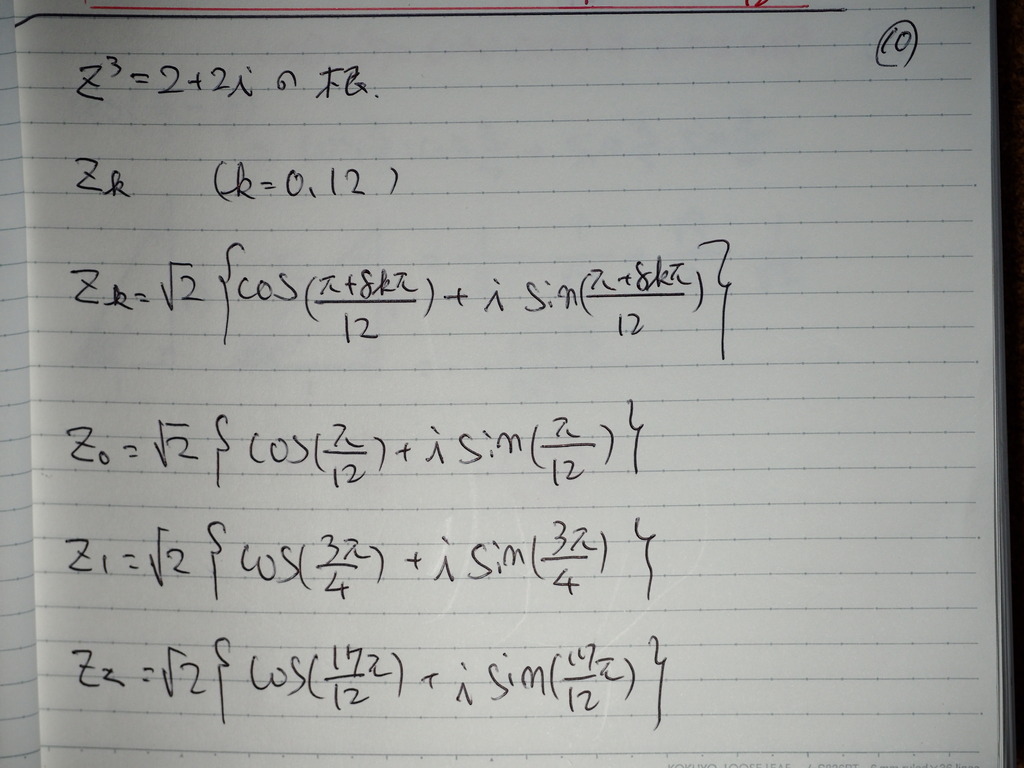 (10)
z³=2+2i の 根.
z_k (k=0.12)
z_k=√2{cos((π+8kπ)/12)+i sin((π+8kπ)/12)}
z₀=√2{cos(π/12)+i sin(π/12)}
z₁=√2{cos(3π/4)+i sin(3π/4)}
z₂=√2{cos(17π/12)+i sin(17π/12)}